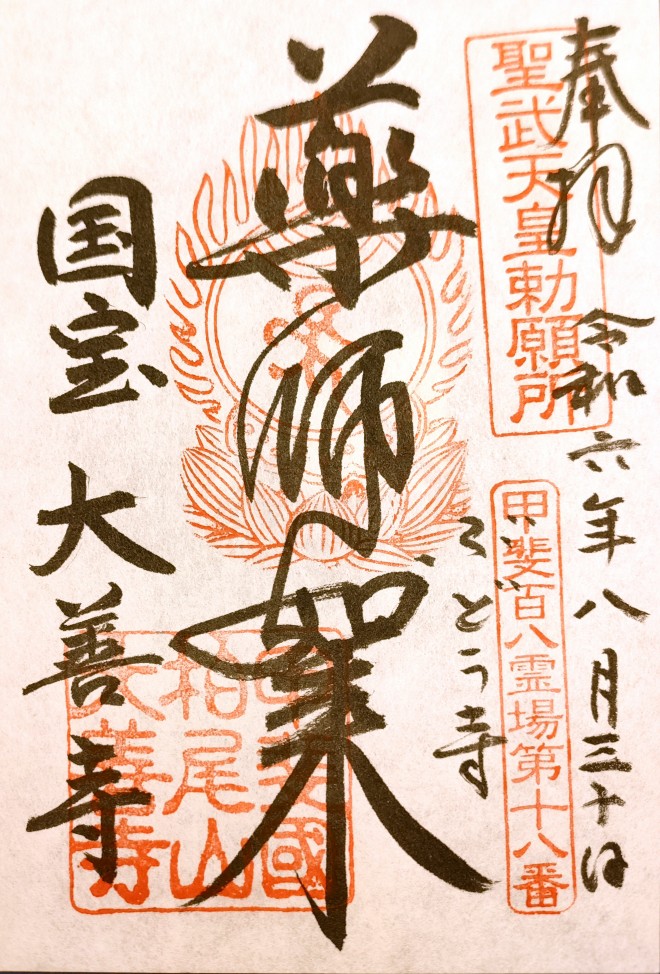 奉拝
令和六年八月三十日
聖武天皇勅願所
甲斐百八霊場第十八番
ぶどう寺
薬師如来
国宝 大善寺
甲斐國
柏尾山
大善寺